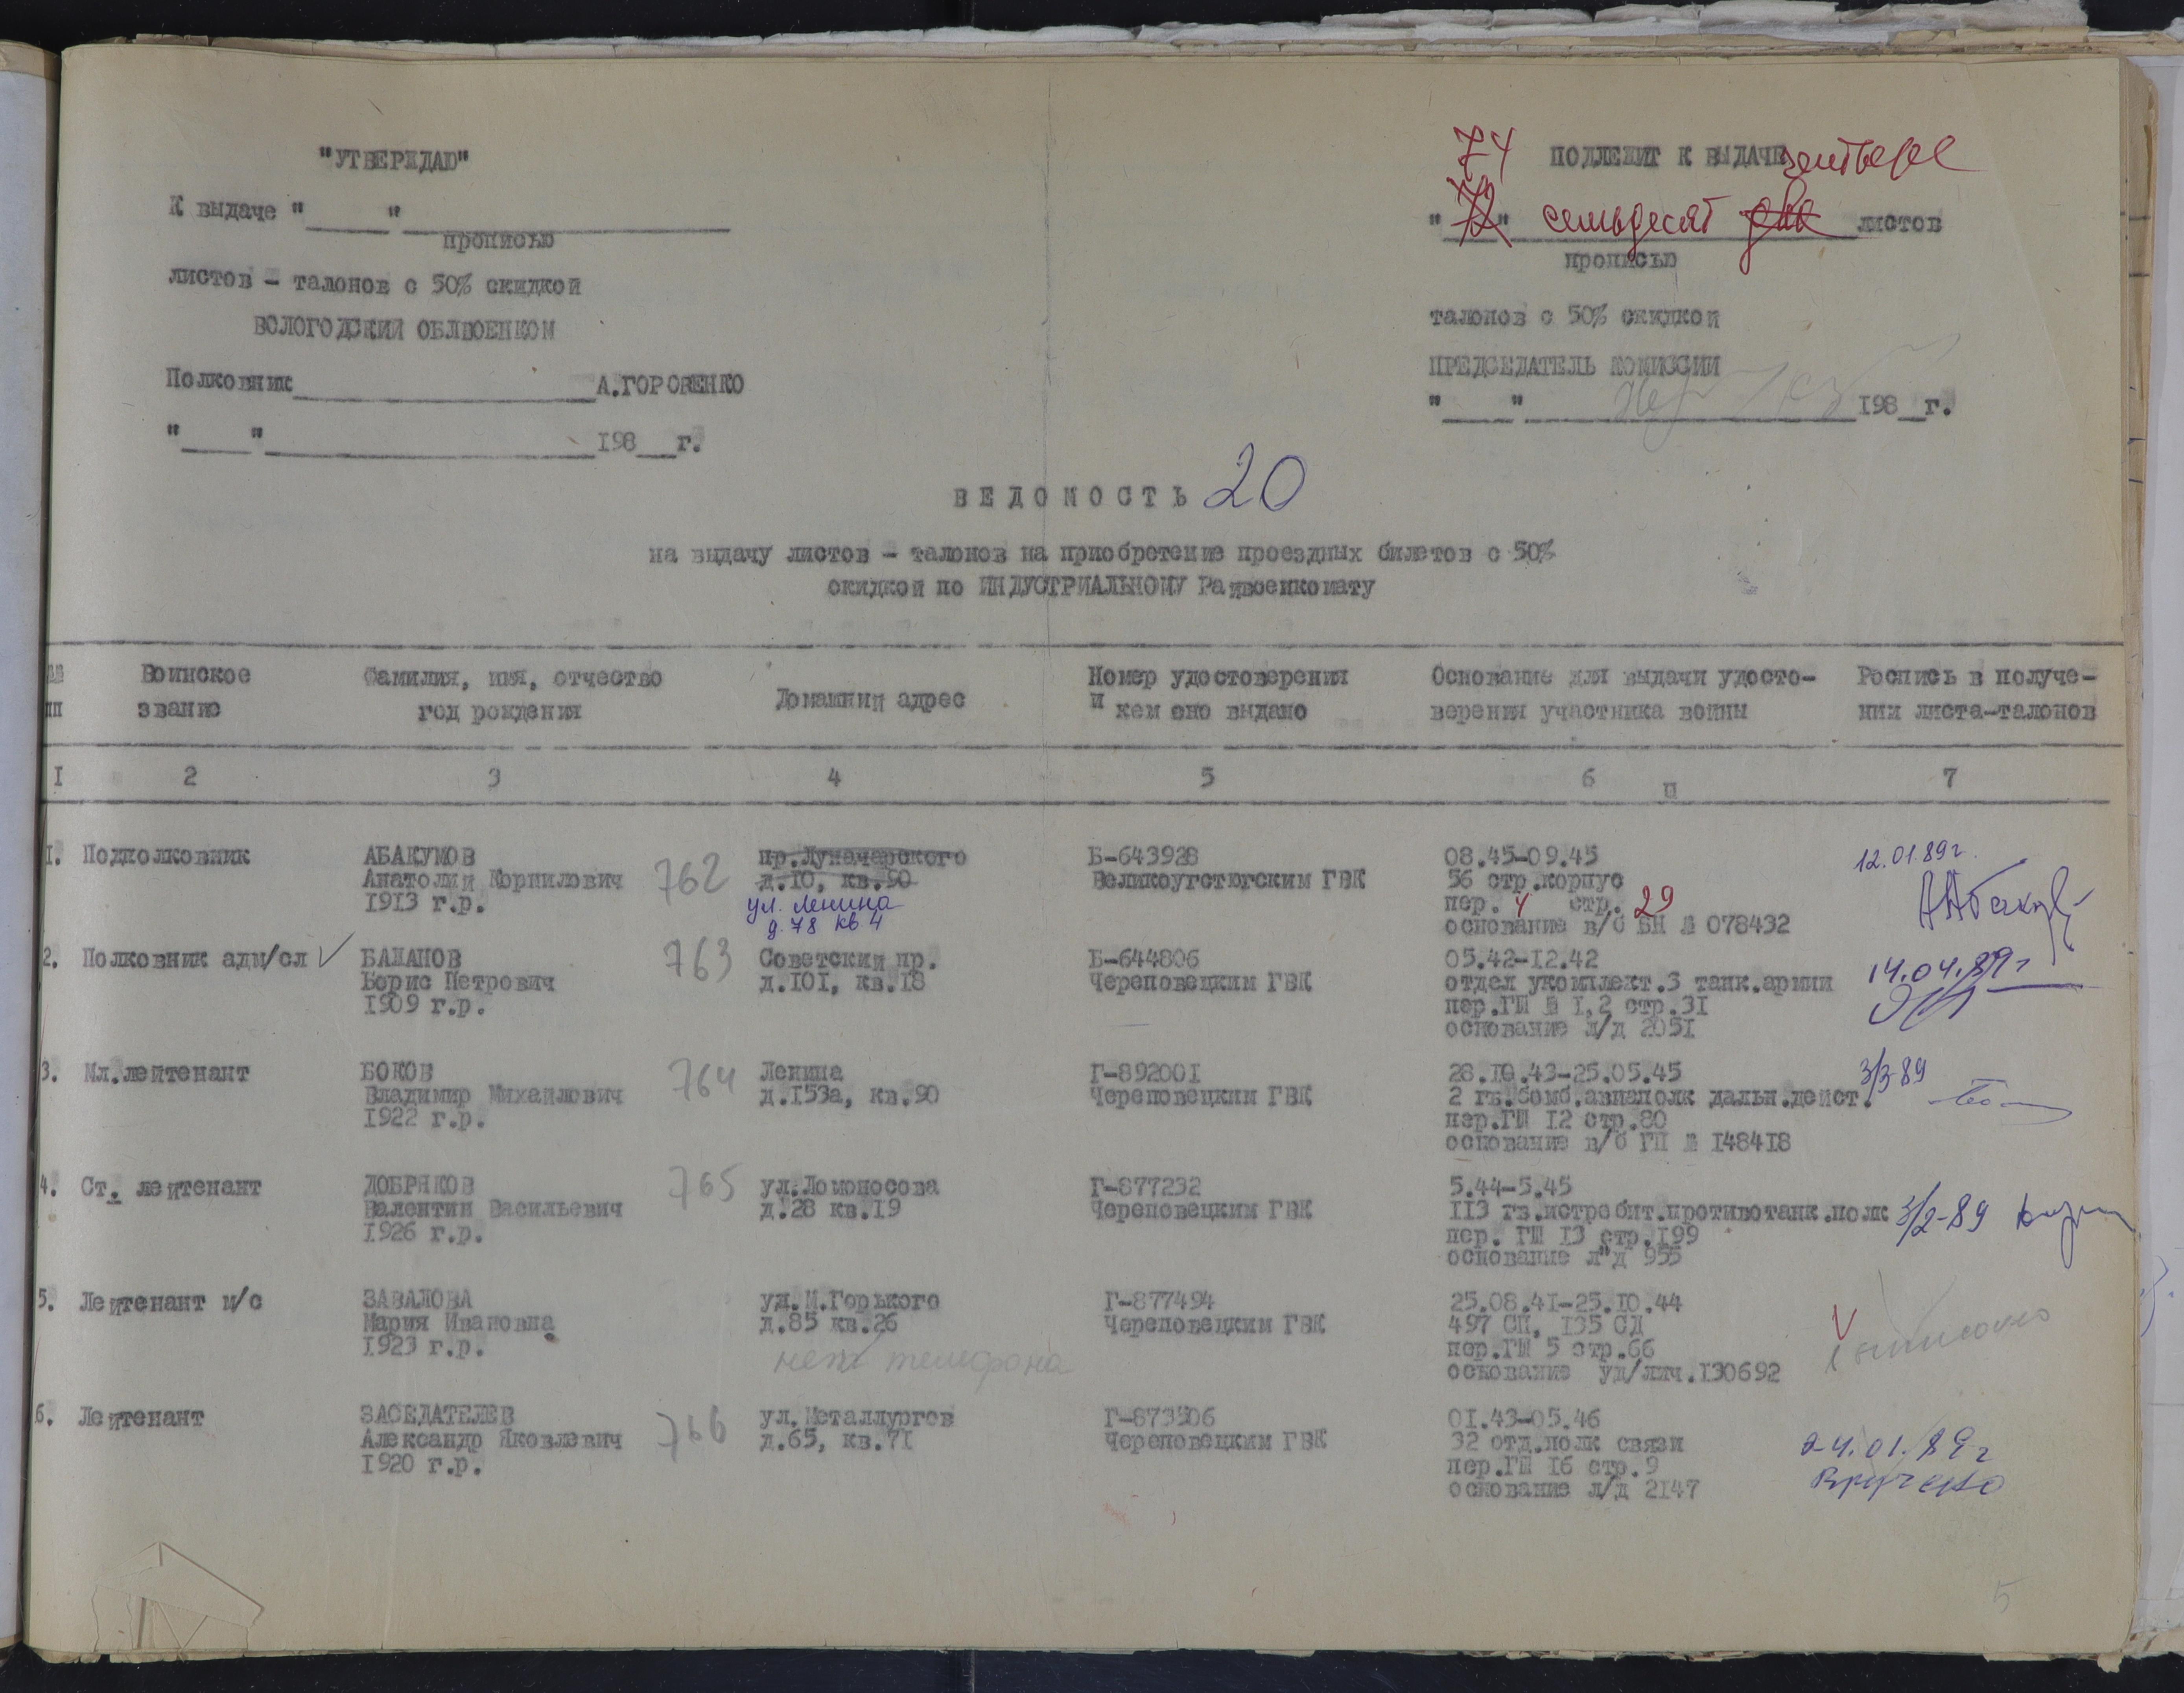 "УТВЕРЖДАЮ"
К выдаче "____" ____________
прописью
листов - талонов с 50% скидкой
ВОЛОГОДСКИЙ ОБЛВОЕНКОМ
Полковник____________А.ГОРОВЕНКО
"____"____________198__г.
74 ПОДЛЕЖИТ К ВЫДАЧЕ четыре
"72" семьдесят два листов
прописью
талонов с 50% скидкой
ПРЕДСЕДАТЕЛЬ КОМИССИИ
"____"____________198__г.
ВЕДОМОСТЬ 20
на выдачу листов - талонов на приобретение проездных билетов с 50%
скидкой по ИНДУСТРИАЛЬНОМУ Райвоенкомату
№№ пп
Воинское звание
Фамилия, имя, отчество год рождения
Домашний адрес
Номер удостоверения и кем оно выдано
Основание для выдачи удосто-
верения участника войны
Роспись в получе-
нии листа-талонов
I 2 3 4 5 6 п 7
I. Подполковник АБАКУМОВ 762 пр.Луначарского Б-643928 08.45-09.45 12.01.89г.
Анатолий Корнилович д.10, кв.90 Великоустюгским ГВК 56 стр.корпус
1913 г.р. ул. Ленина пер. 4 стр. 29
д. 78 кв 4 основание в/б БН № 078432
2. Полковник адм/сл БАЛАНОВ 763 Советский пр. Б-644806 05.42-12.42 14.04.89г
Борис Петрович д.101, кв.18 Череповецким ГВК отдел укомплект.3 танк.армии
1909 г.р. пер.ГШ № 1,2 стр.31
основание л/д 2051
3. Мл.лейтенант БОКОВ 764 Ленина Г-892001 28.10.43-25.05.45 3/3-89
Владимир Михайлович д.153а, кв.90 Череповецким ГВК 2 гв.бомб.авиаполк дальн.дейст.
1922 г.р. пер.ГШ 12 стр.80
основание в/б ГП № 148418
4. Ст. лейтенант ДОБРЯКОВ 765 ул.Ломоносова Г-877232 5.44-5.45
Валентин Васильевич д.28 кв.19 Череповецким ГВК 113 гв.истребит.противотанк.полк 3/2-89
1926 г.р. пер. ГШ 13 стр.199
основание л"д 955
5. Лейтенант м/с ЗАВАЛОВА ул.М.Горького Г-877494 25.08.41-25.10.44
Мария Ивановна д.85 кв.26 Череповецким ГВК 497 СП, 135 СД
1923 г.р. нет телефона пер.ГШ 5 стр.66
основание уд/лич.130692
6. Лейтенант ЗАСЕДАТЕЛЕВ 766 ул.Металлургов Г-873506 01.43-05.46
Александр Яковлевич д.65, кв.71 Череповецким ГВК 32 отд.полк связи 24.01.89г
1920 г.р. пер.ГШ 16 стр.9 Вручено
основание л/д 2147
5